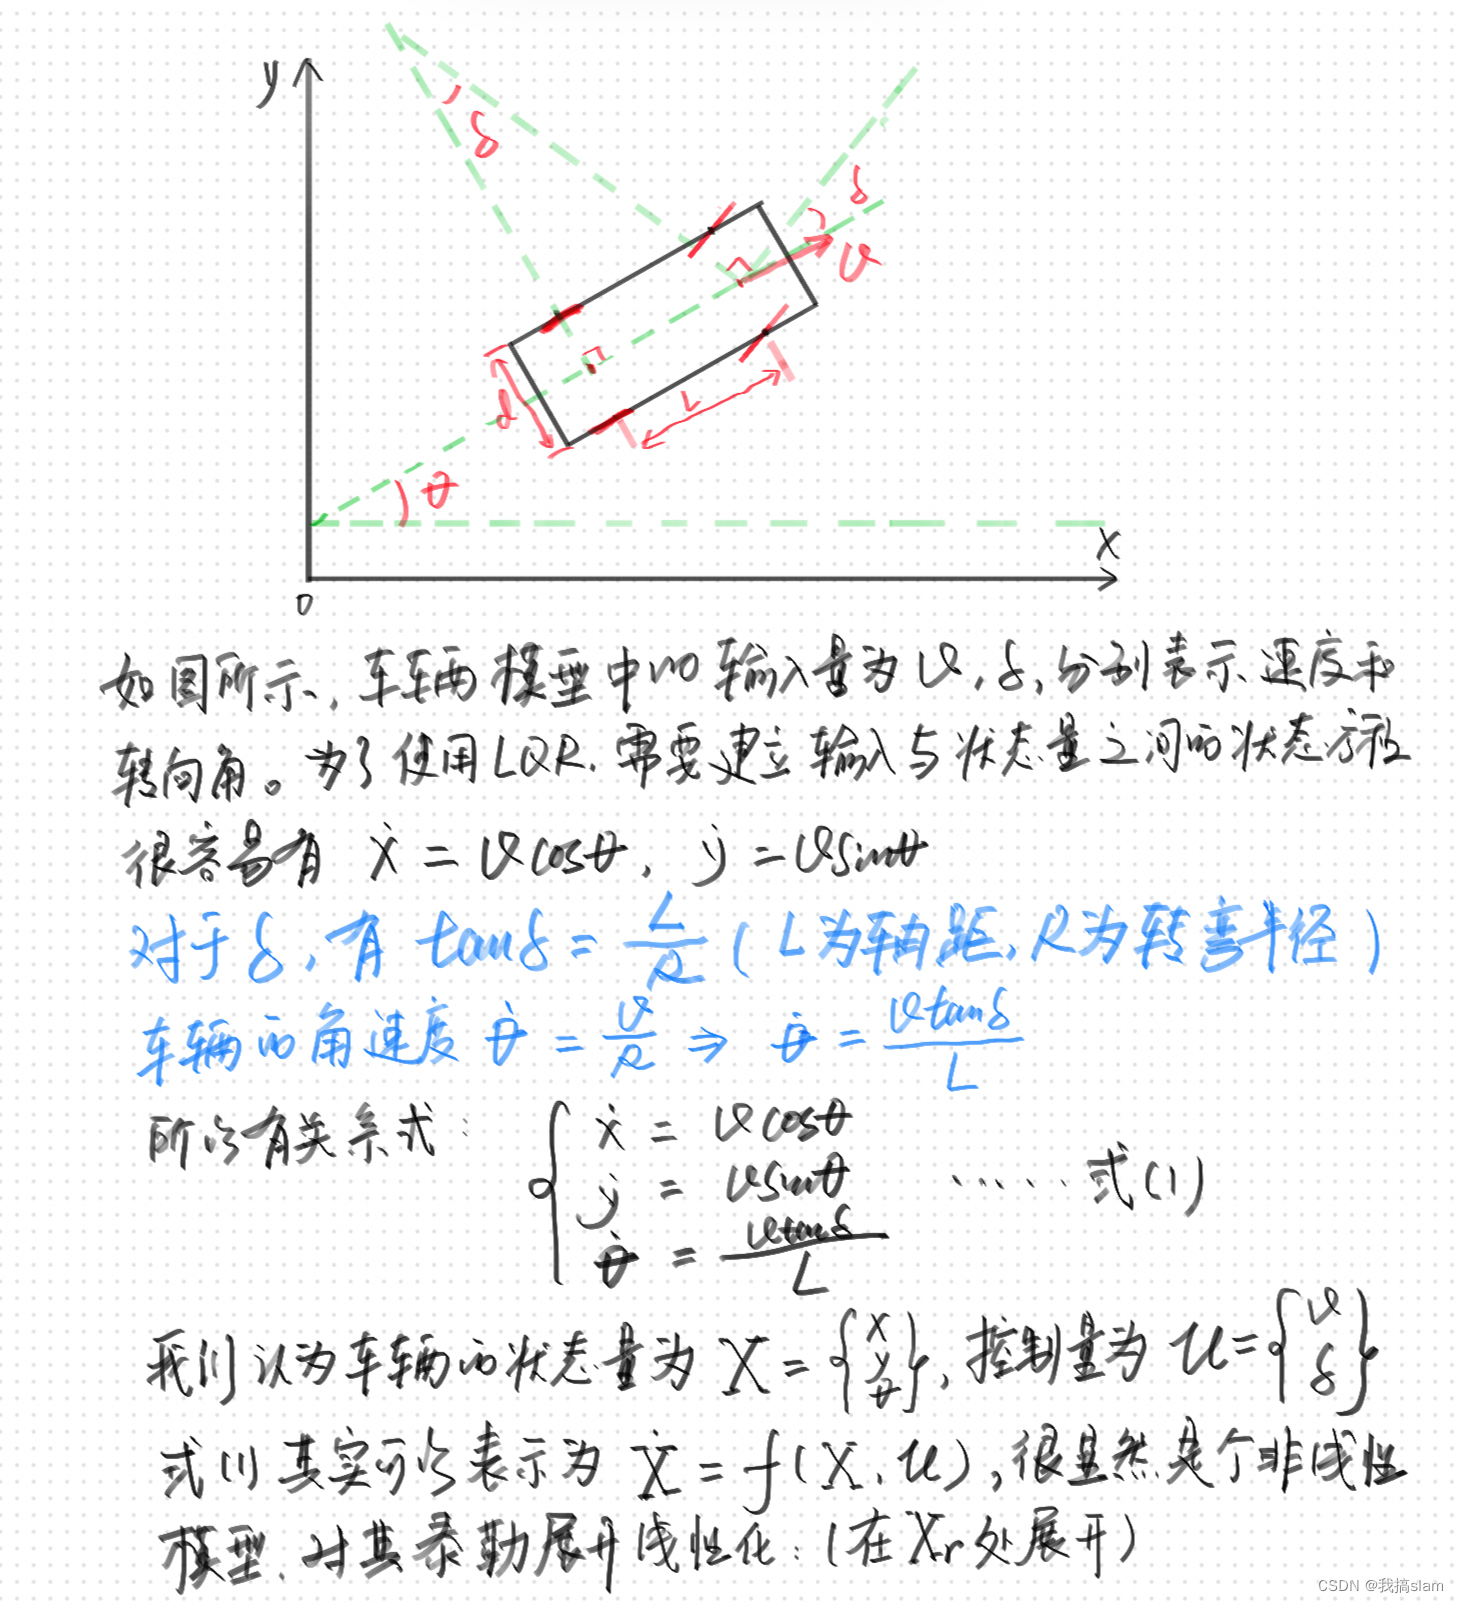 y
δ
δ
v
d
L
θ
x
0
如图所示,车车辆模型中的输入量为v,δ,分别表示速度和
转向角。为了使用LQR,需要建立输入与状态量之间的状态方程
很容易有 ẋ = vcosθ, ẏ = vsinθ
对于δ,有 tanδ = L/R (L为轴距,R为转弯半径)
车辆的角速度 θ̇ = v/R ⇒ θ̇ = vtanδ/L
所以有关系式:
{ ẋ = vcosθ
ẏ = vsinθ ......式(1)
θ̇ = vtanδ/L
我们认为车辆的状态量为 X = {x y θ}, 控制量为 u = {v δ}
式(1)其实可以表示为 Ẋ = f(X, u), 很显然是个非线性
模型,对其泰勒展开线性化:(在Xr处展开)
CSDN @我搞slam